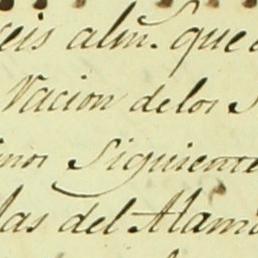 alm. que
Nacion de los
Siguiente
las del Alam